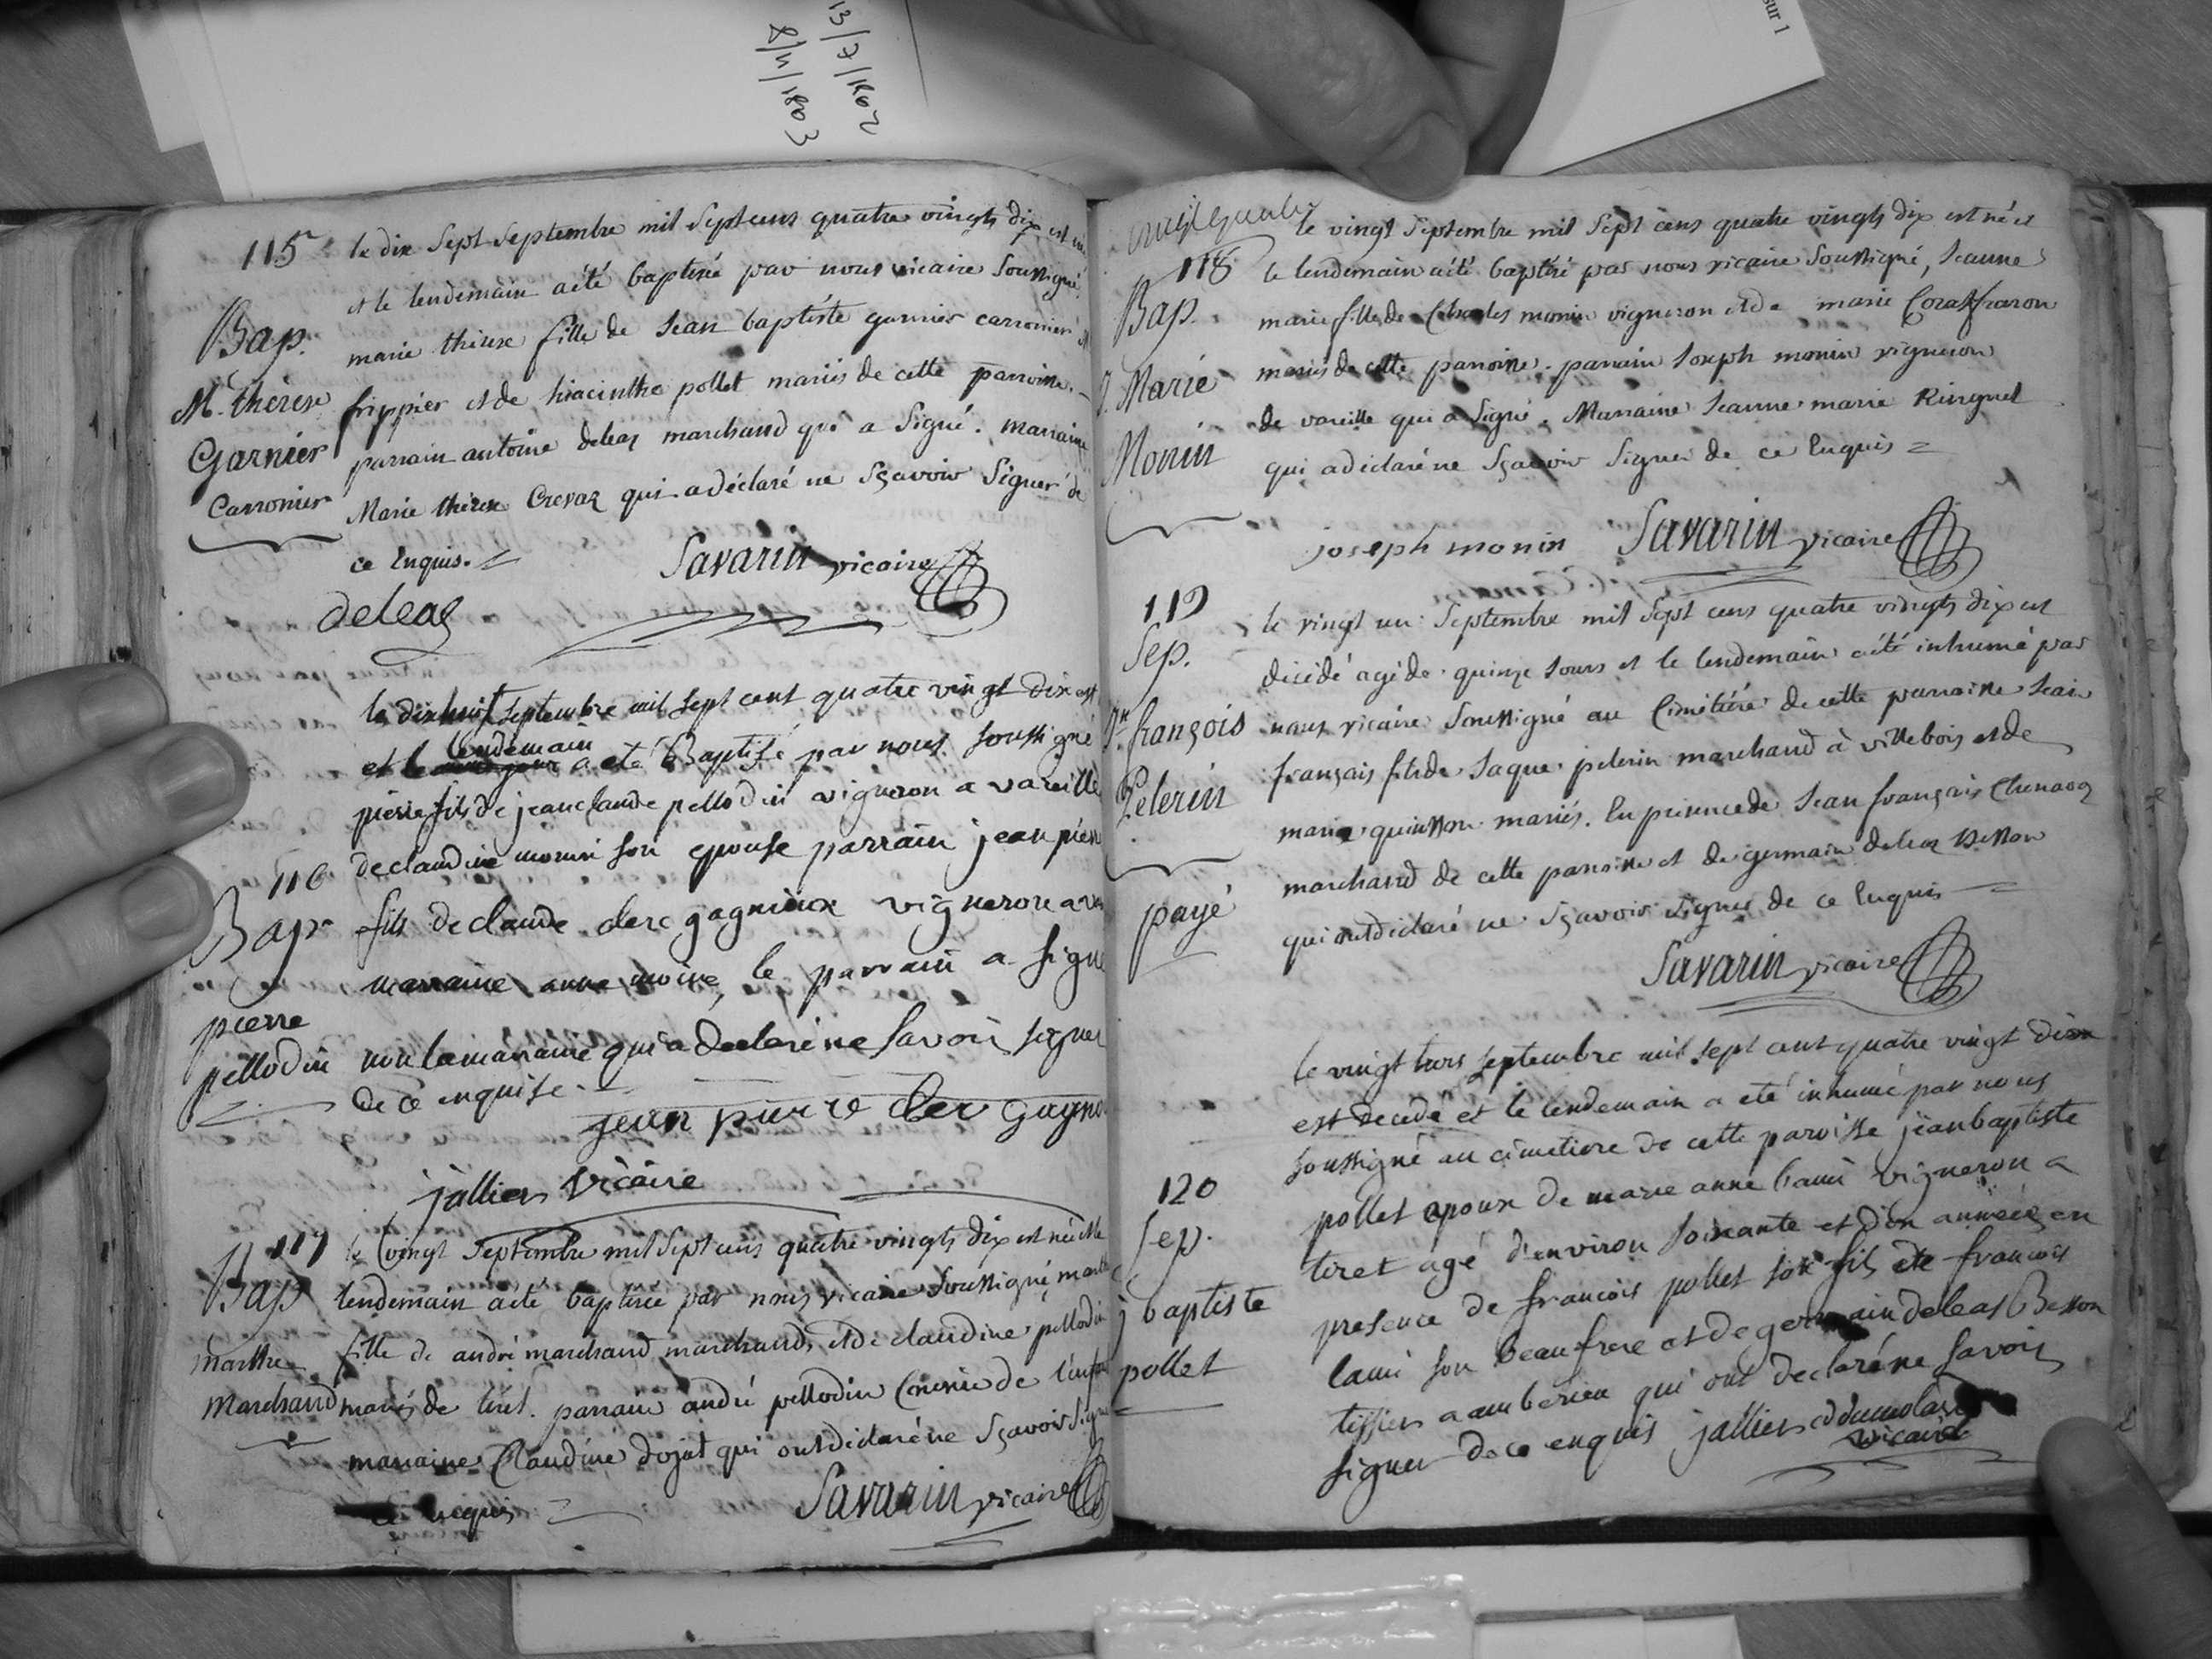 13/7/1802
8/11/1803
sur 1
115
le dix sept septembre mil sept cens quatre vingts dix est née
et le lendemain a été baptisée par nous vicaire soussigné
Bap.
marie thérèse fille de jean baptiste garnier carronier
M. thérèse
frippier et de hiacinthe pollet mariés de cette parroisse.
Garnier
parrain antoine deleaz marchand qui a signé. marraine
Carronier
Marie thérèse Crevaz qui a déclaré ne sçavoir signer de
ce enquis.
Savarin vicaire
deleas
le dix huit septembre mil sept cent quatre vingt dix est
lendemain
et le a eté Baptisé par nous soussigné
pierre fils de jean claude pellodin vigneron a vareille
116
de claudine monin son epouse parrain jean pierre
Bap
fils de claude clerc gagnieux vigneron a
marraine anne moine, le parrain a signé
pierre
pellodin
non la maraine qui a declaré ne savoir signer
de ce enquise
jean pierre cler gagno
jallier vicaire
117
le vingt septembre mil sept cens quatre vingts dix est née et le
Bap
lendemain a été baptisée par nous vicaire soussigné, marthe
marthe
fille de andré marchand marchand, et de claudine pellodin
Marchand
mariés de tiret. parrain andré pellodin de l'enfant
marraine Claudine dojat qui ont déclaré ne sçavoir signer
ce enquis
Savarin vicaire
118
le vingt septembre mil sept cens quatre vingts dix est née et
le lendemain a été baptisé par nous vicaire soussigné, jeanne
Bap.
marie fille de Charles monin vigneron et de marie
J. Marie
mariés de cette paroisse. parrain joseph monin vigneron
de vareille qui a signé. Marraine jeanne marie Ringuet
Monin
qui a déclaré ne sçavoir signer de ce enquis
joseph monin Savarin vicaire
119
le vingt un septembre mil sept cens quatre vingts dix est
Sep.
décédé agé de quinze jours et le lendemain a été inhumé par
Jn françois
nous vicaire soussigné au Cimétière de cette parroisse jean
français fils de jaque pelerin marchand à villebois et de
Pelerin
marie quinson mariés. En présence de jean français Chenavaz
marchand de cette paroisse et de germain deleaz Besson
payé
qui ont déclaré ne sçavoir signer de ce enquis
Savarin vicaire
le vingt trois septembre mil sept cent quatre vingt dix
est decedé et le lendemain a eté inhumé par nous
soussigné au cimetiere de cette paroisse jean baptiste
120
pollet epoux de marie anne lami vigneron a
Sep.
tiret agé d'environ soixante et dix années en
j baptiste
presence de francois pollet son fils et de francois
pollet
lami son beaufrere et de germain deleas Besson
tissier a amberieu qui ont declaré ne savoir
signer de ce enquis jallier
vicaire